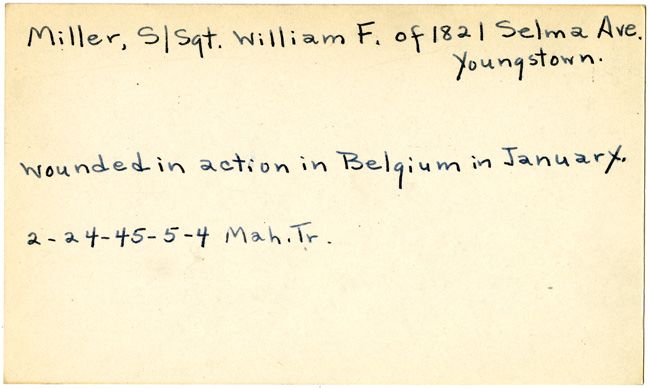 Miller, S/Sgt. William F. of 1821 Selma Ave.
Youngstown.
wounded in action in Belgium in January.
2-24-45-5-4 Mah. Tr.